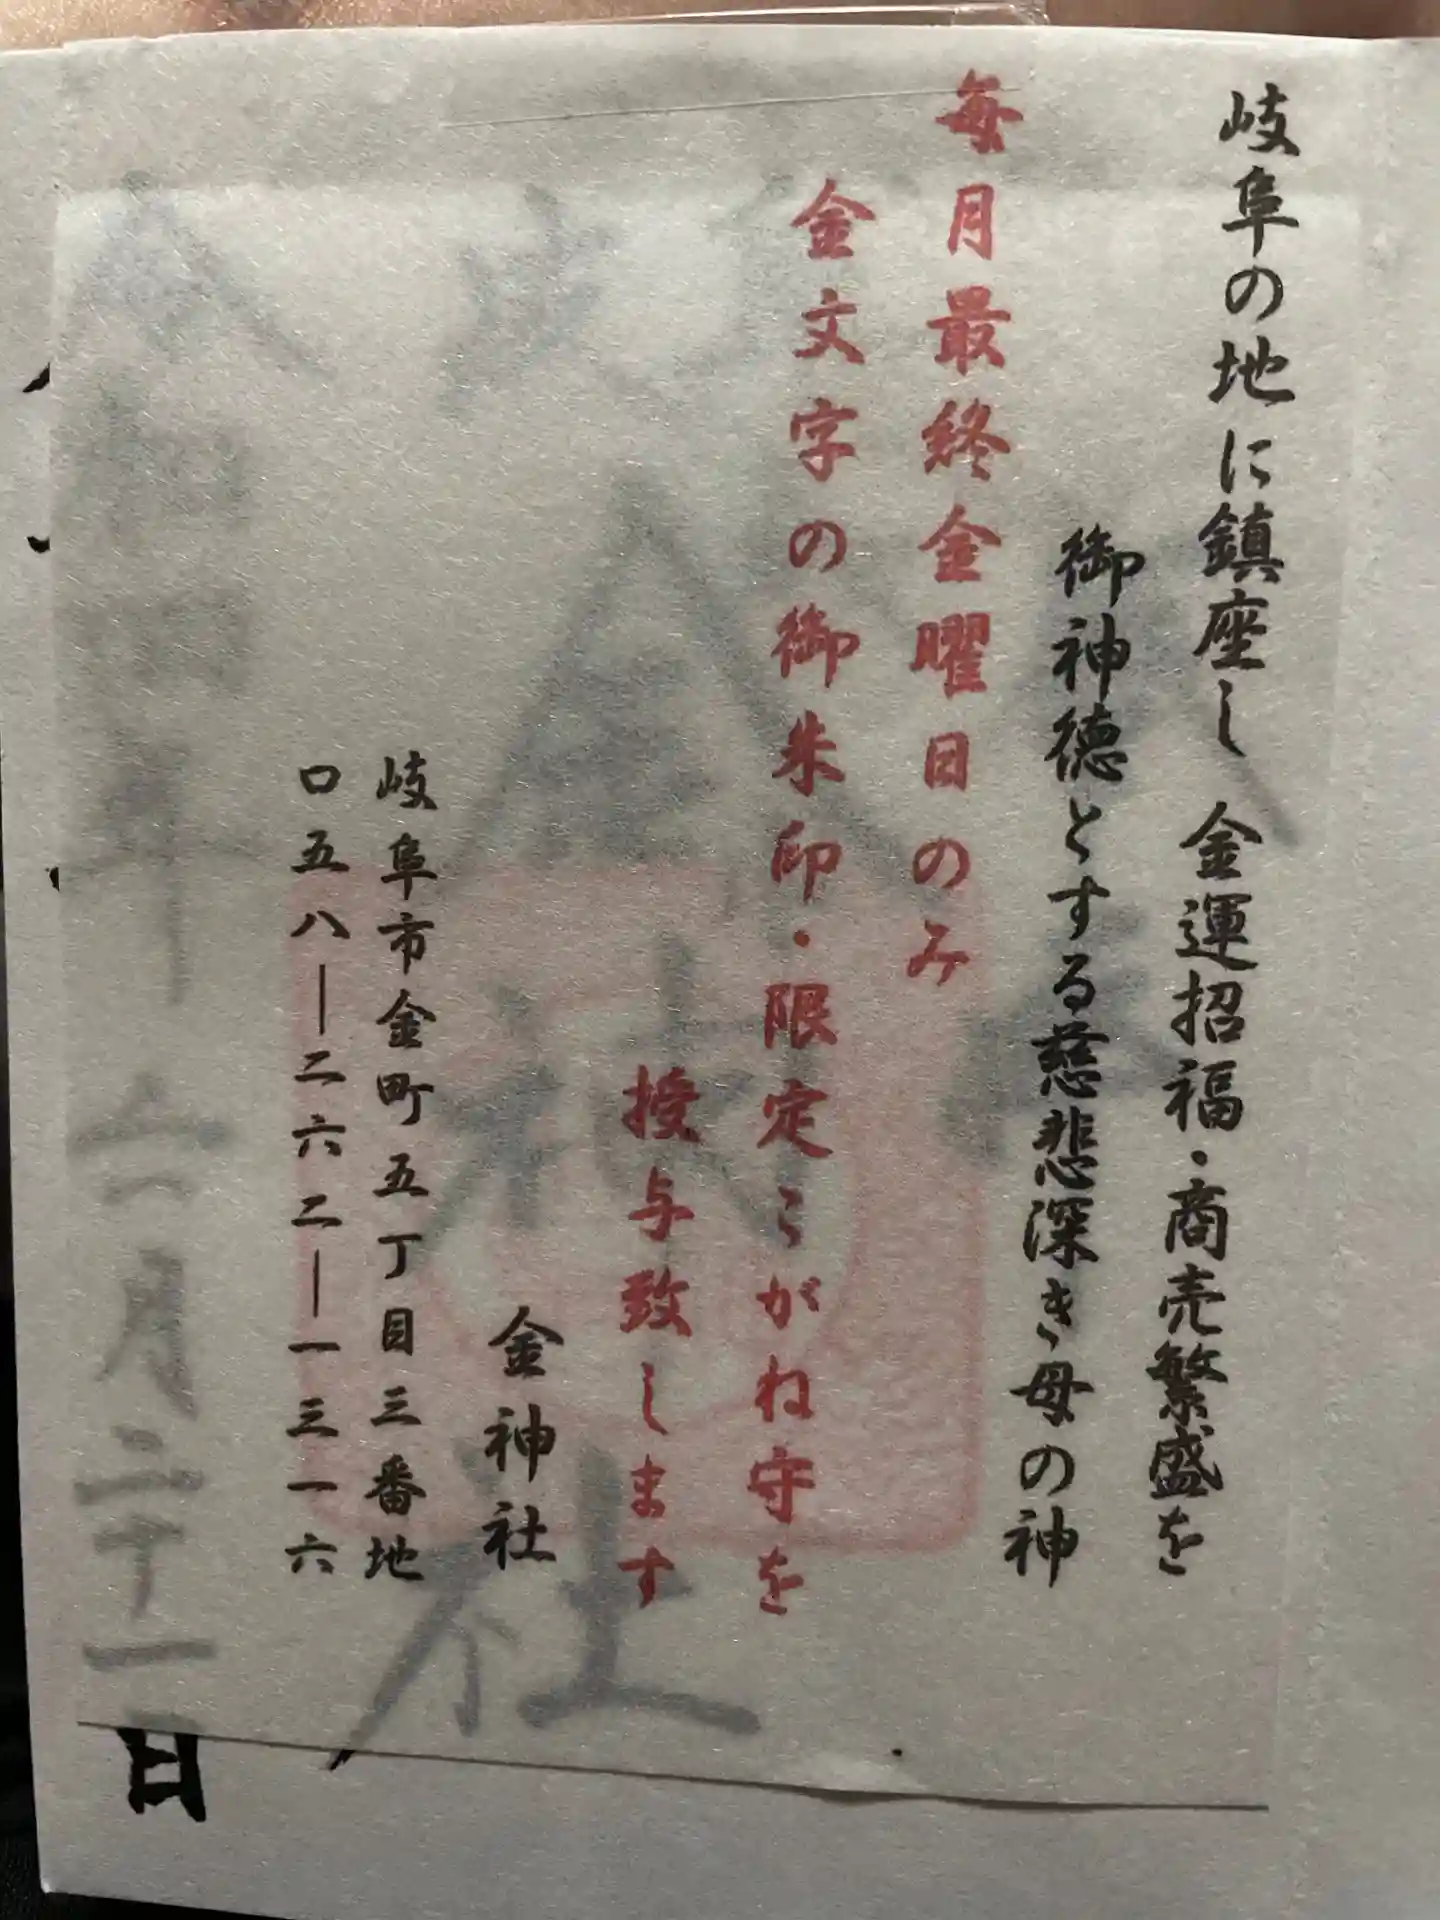 岐阜の地に鎮座し　金運招福・商売繁盛を
御神徳とする慈悲深き母の神
毎月最終金曜日のみ
金文字の御朱印・限定こがね守を
授与致します
金神社
岐阜市金町五丁目三番地
〇五八―二六二―一三一六
金神社
六月二十一日